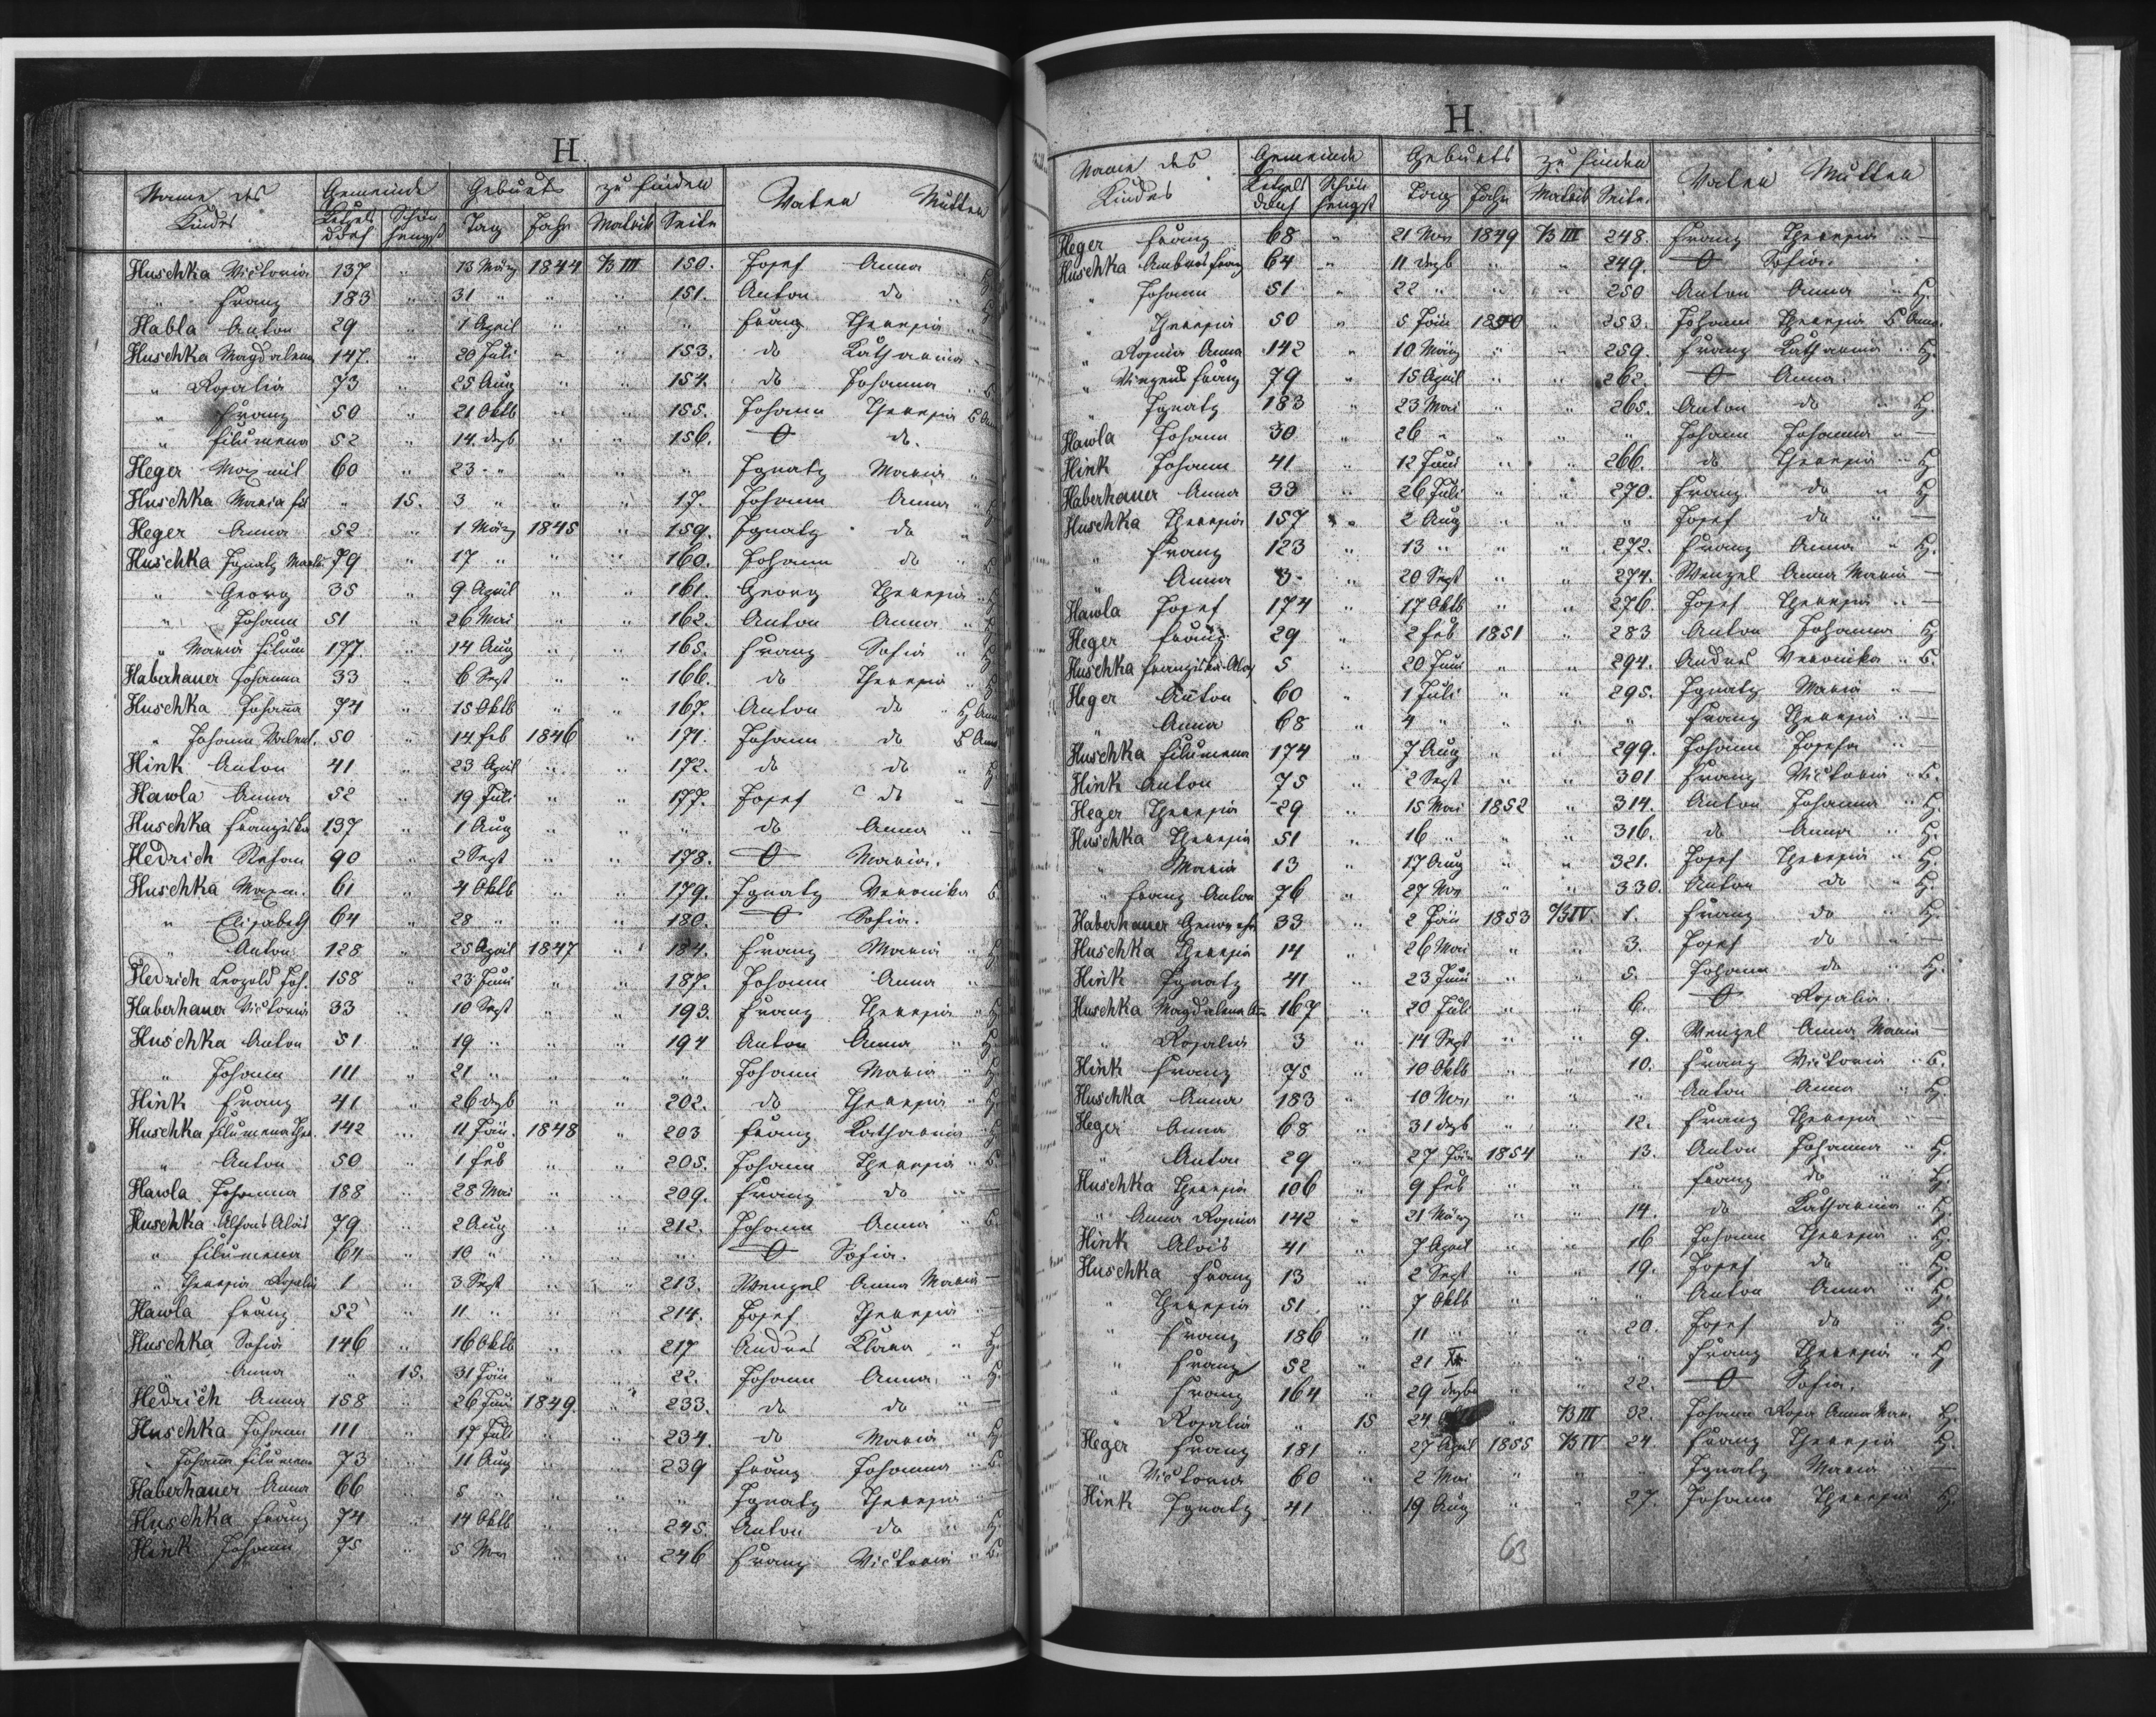 H.
Name des Kindes Gemeinde Geburts zu finden Vater Mutter
Ketzelsdorf Schönhengst Tag Jahr Matrik Seite
Huschka Victoria 137 " 13 März 1844 B III 150. Josef Anna "
" Franz 183 " 31 " " " 151. Anton do "
Habla Anton 29 " 1 April " " " Franz Theresia "
Huschka Magdalena 147. " 20 Juli " " 153. do Katharina
" Rosalia 73 " 25 Aug " " 154. do Johanna "
" Franz 50 " 21 Oktb " " 155. Johann Theresia
" Filumena 52 " 14. dezb " " 156. O do.
Heger Maxmil 60 " 23 " " " " Ignatz Maria "
Huschka Maria " 15. 3 " " " 17. Johann Anna "
Heger Anna 52 " 1 März 1845 " 159. Ignatz do "
Huschka Ignatz 79 " 17 " " " 160. Johann do "
" Georg 35 " 9 April " " 161. Georg Theresia "
" Johann 51 " 26 Mai " " 162. Anton Anna "
" Maria Filum 177. " 14 Aug " " 165. Franz Sofia "
Haberhauer Johanna 33 " 6 Sept " " 166. do Theresia "
Huschka Johanna 74 " 15 Oktb " " 167. Anton do "
" Johann Valent. 50 " 14 Feb 1846 " 171. Johann do
Hink Anton 41 " 23 April " " 172. do do "
Hawla Anna 52 " 19 Juli " " 177. Josef do "
Huschka Franziska 137 " 1 Aug " " " do Anna "
Hedrich Stefan 90 " 2 Sept " " 178. O Maria.
Huschka Maxm. 61 " 4 Oktb " " 179. Ignatz Veronika
" Elisabeth 64 " 28 " " " 180. O Sofia.
" Anton 128 " 25 April 1847 " 184. Franz Maria "
Hedrich Leopold Joh. 158 " 23 Juni " " 187. Johann Anna "
Haberhauer Victoria 33 " 10 Sept " " 193. Franz Theresia "
Huschka Anton 51 " 19 " " " 194 Anton Anna "
" Johann 111 " 21 " " " " Johann Maria "
Hink Franz 41 " 26 dezb " " 202. do Theresia "
Huschka Filumena Ther. 142 " 11 Jän. 1848 " 203 Franz Katharina "
" Anton 50 " 1 Feb " " 205. Johann Theresia "
Hawla Johanna 188 " 28 Mai " " 209. Franz do "
Huschka Alfons Alois 79 " 2 Aug " " 212. Johann Anna "
" Filumena 64 " 10 " " " " O Sofia.
" Theresia Rosalia 1 " 3 Sept " " 213. Wenzel Anna Maria
Hawla Franz 52 " 11 " " " 214. Josef Theresia "
Huschka Sofia 146 " 16 Oktb " " 217 Andres Klara "
" Anna " 15. 31 Jän " " 22. Johann Anna "
Hedrich Anna 158 26 Juni 1849. " 233. do do "
Huschka Johann 111 " 17 Juli " " 234. do Maria "
" Johanna Filumena 73 " 11 Aug " " 239 Franz Johanna "
Haberhauer Anna 66 " 5 " " " " Ignatz Theresia "
Huschka Franz 74 " 14 Oktb " " 245. Anton do "
Hink Johann 75 " 5 Nov " " 246 Franz Victoria "
H.
Name des Kindes Gemeinde Geburts zu finden Vater Mutter
Ketzelsdorf Schönhengst Tag Jahr Matrik Seite.
Heger Franz 68 " 21 Nov 1849 B III 248. Franz Theresia "
Huschka Ambros Franz 64 " 11 dezb " " 249. O Sofia.
" Johann 51 " 22 " " " 250 Anton Anna "
" Theresia 50 " 5 Jän 1850 " 253. Johann Theresia
" Rosina Anna 142 " 10 März " " 259. Franz Katharina "
" Vinzens Franz 79 " 15 April " " 262. O Anna.
" Ignatz 183 " 23 Mai " " 265. Anton do "
Hawla Johann 30 " 26 " " " " Johann Johanna "
Hink Johann 41 " 12 Juni " " 266. do Theresia "
Haberhauer Anna 33 " 26 Juli " " 270. Franz do "
Huschka Theresia 157 " 2 Aug " " " Josef do "
" Franz 123 " 13 " " " 272. Franz Anna "
" Anna 3 " 20 Sept " " 274. Wenzel Anna Maria
Hawla Josef 174 " 17 Oktb " " 276. Josef Theresia "
Heger Franz 29 " 2 Feb 1851 " 283 Anton Johanna
Huschka Franziska 5 " 20 Juni " " 294. Andres Veronika "
Heger Anton 60 " 1 Juli " " 295. Ignatz Maria "
" Anna 68 " 4 " " " " Franz Theresia "
Huschka Filumena 174 " 7 Aug " " 299. Johann Josefa "
Hink Anton 75 " 2 Sept " " 301. Franz Victoria "
Heger Theresia 29 " 15 Mai 1852 " 314. Anton Johanna "
Huschka Theresia 51 " 16 " " " 316. do Anna "
" Maria 13 " 17 Aug " " 321. Josef Theresia "
" Franz Anton 76 " 27 Nov " " 330. Anton do "
Haberhauer Genovefa 33 " 2 Jän 1853 B IV. 1. Franz do "
Huschka Theresia 14 " 26 Mai " " 3. Josef do "
Hink Ignatz 41 " 23 Juni " " 5. Johann do "
Huschka Magdalena 167 " 20 Juli " " 6. O Rosalia.
" Rosalia 3 " 14 Sept " " 9. Wenzel Anna Maria
Hink Franz 75 " 10 Oktb " " 10. Franz Victoria "
Huschka Anna 183 " 10 Nov " " " Anton Anna "
Heger Anna 68 " 31 dezb " " 12. Franz Theresia "
" Anton 29 " 27 Jän 1854 " 13. Anton Johanna "
Huschka Theresia 106 " 9 Feb " " " Franz do "
" Anna Rosina 142 " 21 März " " 14. do Katharina "
Hink Alois 41 " 7 April " " 16 Johann Theresia "
Huschka Franz 13 " 2 Sept " " 19. Josef do "
" Theresia 51 " 7 Oktb " " " Anton Anna "
" Franz 186 " 11 " " " 20. Josef do "
" Franz 52 " 21 " " " Franz Theresia "
" Franz 164 " 29 dezb " " 22. O Sofia.
" Rosalia " 15 24 " B III 32. Johann Rosa Anna Mar.
Heger Franz 181 " 27 April 1855 B IV 24 Franz Theresia
" Victoria 60 " 2 Mai " " " Ignatz Maria "
Hink Ignatz 41 " 19 Aug " " 27. Johann Theresia
63